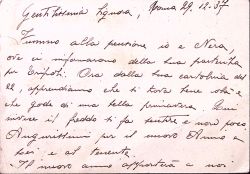 Gentilissima Signora, Roma 29.12.37
Fummo alla pensione io e Nera,
ove ci informarono della sua partenza
per Tripoli. Ora dalla sua cartolina del
22, apprendiamo che si trova bene costì e
che gode di una bella primavera. Qui
invece il freddo si fa sentire e non poco
Augurissimi per il nuovo Anno a
Lei e al tenente.
Il nuovo anno apporterà a noi